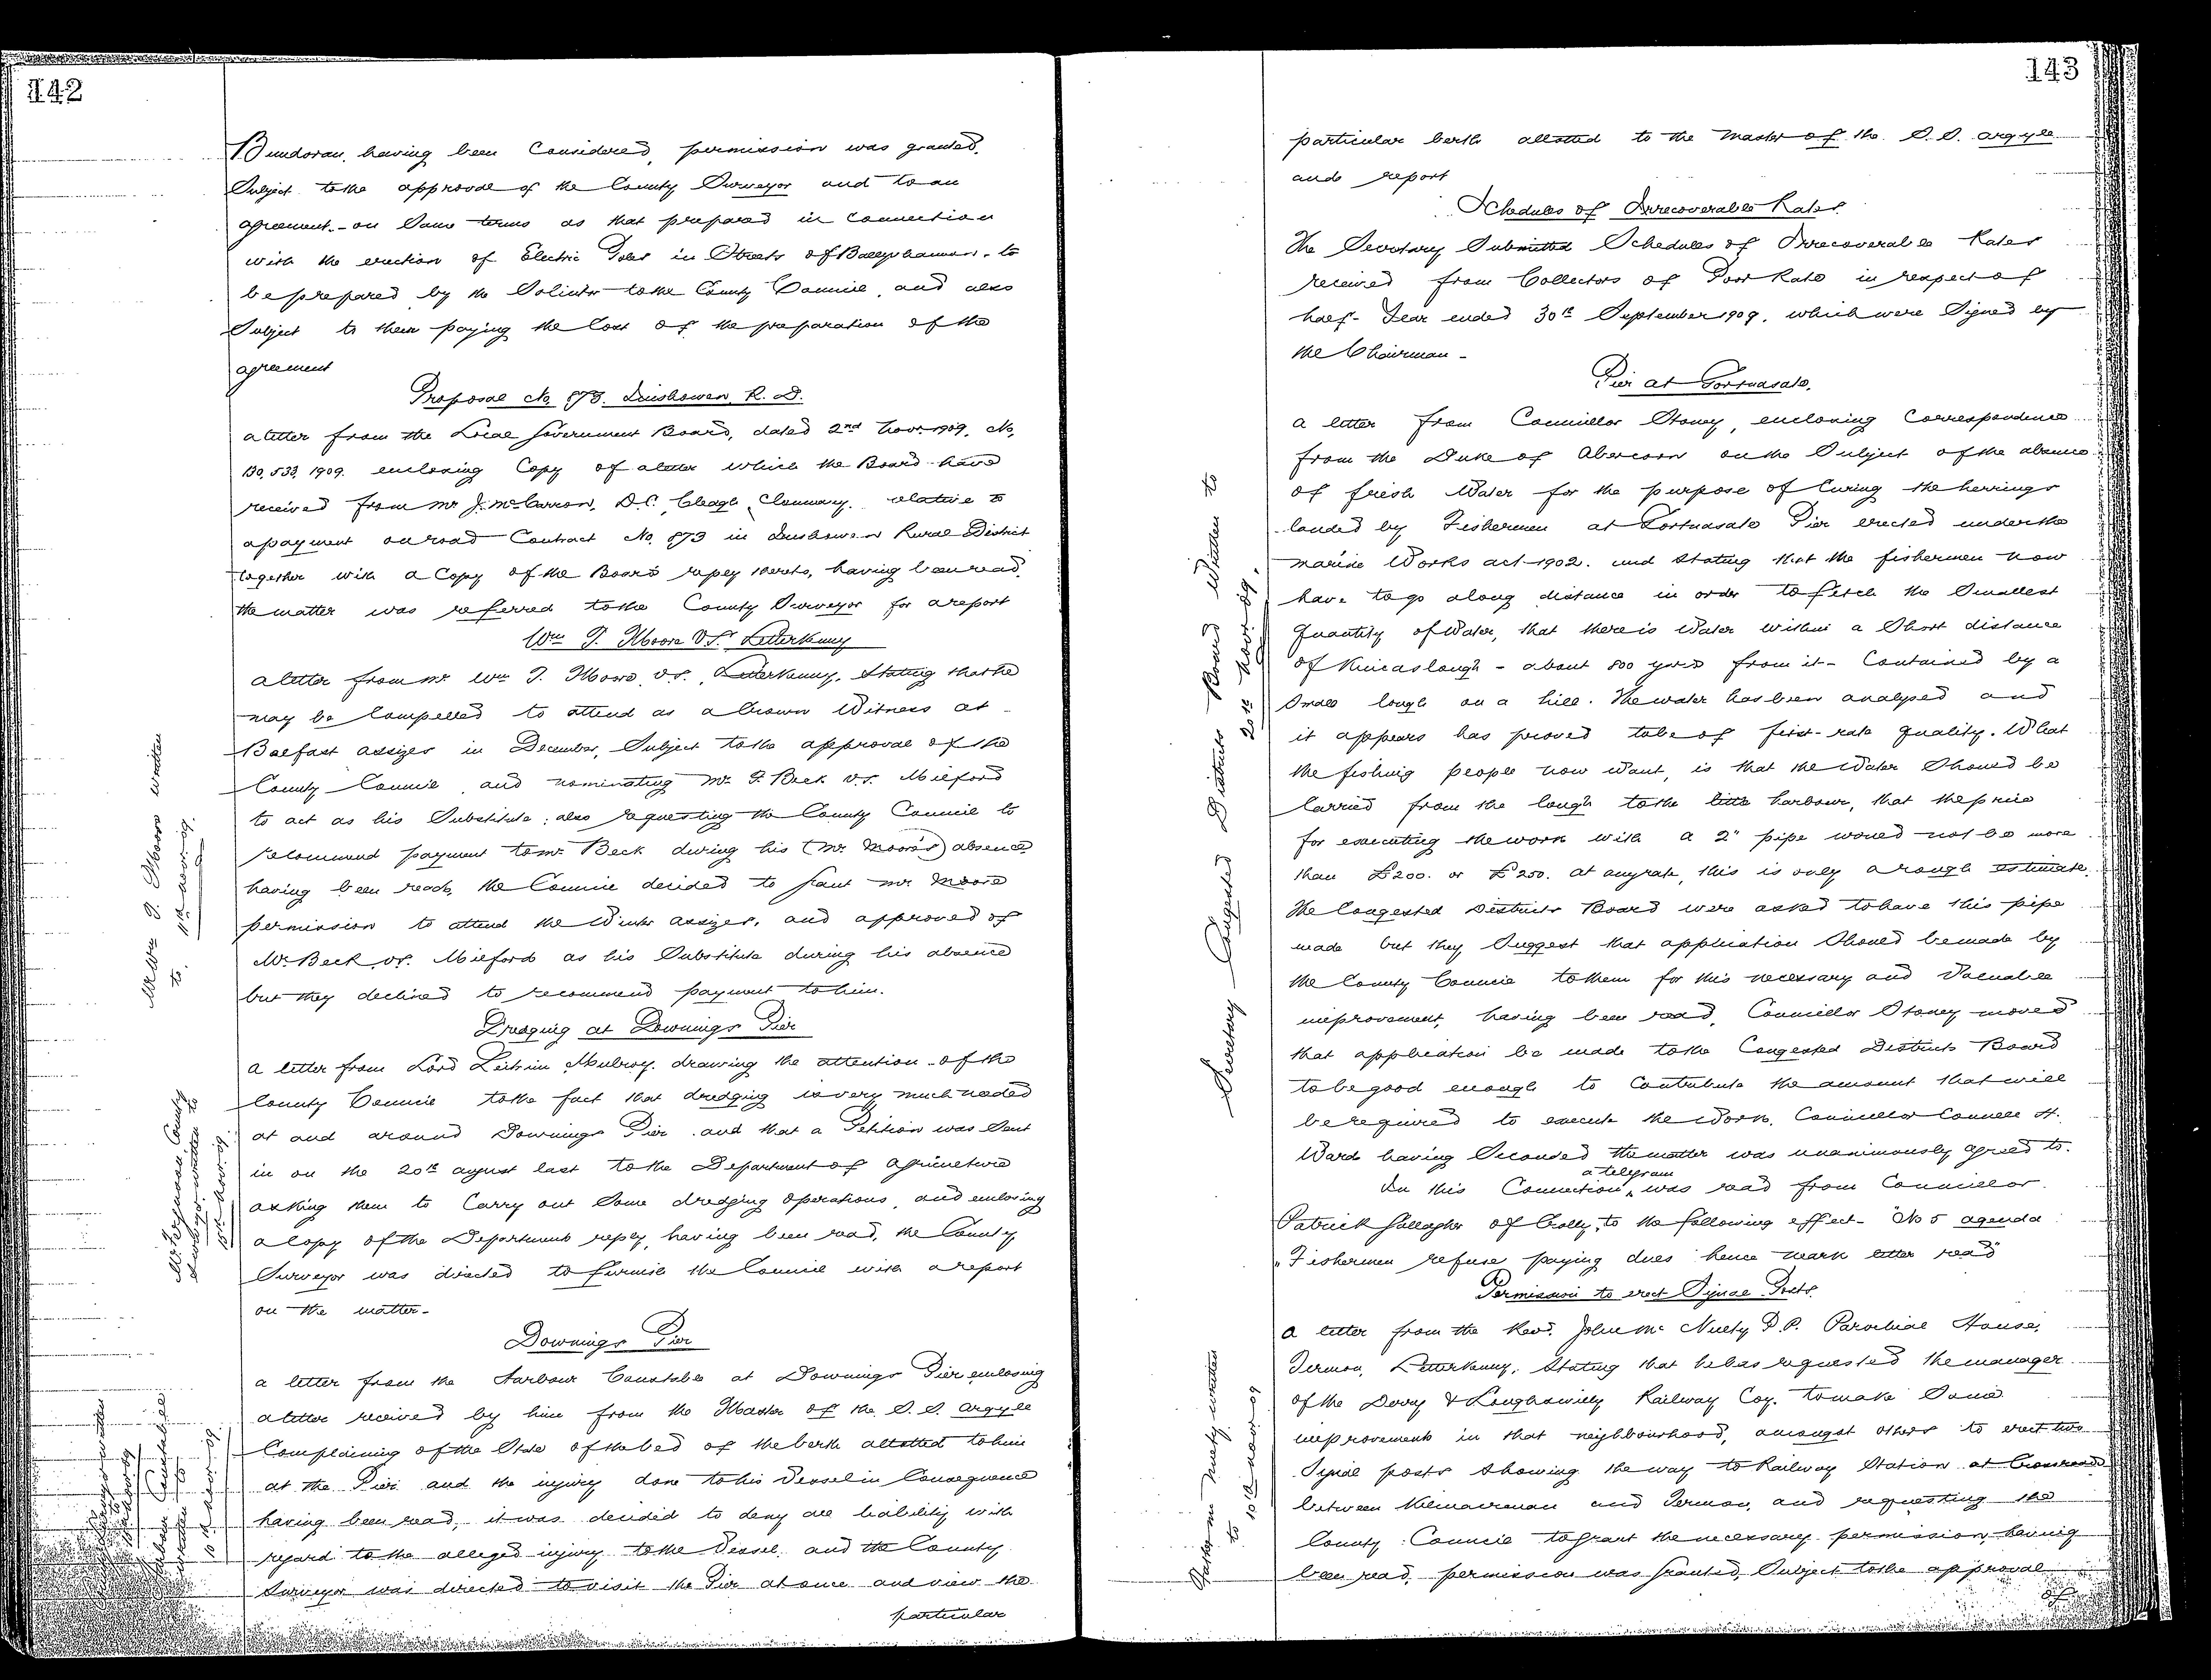 142
Bundoran, having been Considered, permission was granted,
Subject to the approval of the County Surveyor and to an
agreement - on Same terms as that prepared in Connection
with the erection of Electric Poles in Streets of Ballyshannon, to
be prepared by the Solicitor to the County Council, and also
Subject to them paying the Cost of the preparation of the
agreement
Proposal No. 873. Inishowen R. D.
a letter from the Local Government Board, dated 2nd Novr. 1909, No,
130,533, 1909. enclosing Copy of a letter which the Board have
received from Mr J. McCarron, D.C. Cleagh, Clonmany. relative to
a payment on road Contract No. 873 in Inishowen Rural District
together with a Copy of the Board's reply thereto, having been read,
the matter was referred to the County Surveyor for a report
Wm T. Moore V.S. Letterkenny
a letter from Mr. Wm T. Moore, V.S., Letterkenny, Stating that he
may be Compelled to attend as a Crown Witness at
Belfast assizes in December, Subject to the approval of the
County Council, and nominating Mr. F. Beck V.S. Milford
to act as his Substitute; also requesting the County Council to
recommend payment to Mr Beck during his (Mr. Moore's) absence
having been read, the Council decided to grant Mr Moore
permission to attend the Winter assizes, and approved of
Mr. Beck V.S. Milford as his Substitute during his absence
but they declined to recommend payment to him.
Mr Wm T. Moore written
to. 11th Novr. 09.
Dredging at Downings Pier
a letter from Lord Leitrim, Mulroy, drawing the attention of the
County Council to the fact that dredging is very much needed
at and around Downings Pier and that a Petition was Sent
in on the 20th august last to the Department of agriculture
asking them to Carry out Some dredging operations, and enclosing
a Copy of the Department's reply, having been read, the County
Surveyor was directed to furnish the Council with a report
on the matter.
County
Surveyor written to
15th Novr. 09.
Downings Pier
a letter from the Harbour Constable at Downings Pier enclosing
a letter received by him from the Master of the S.S. Argyle
Complaining of the State of the bed of the berth allotted to him
at the Pier and the injury done to his Vessel in Consequence
having been read, it was decided to deny all liability with
regard to the alleged injury to the Vessel, and the County
Surveyor was directed to visit the Pier at once and view the
particular
143
particular berth allotted to the Master of the S.S. Argyle
and report
Schedules of Irrecoverable Rates.
The Secretary Submitted Schedules of Irrecoverable Rates
received from Collectors of Poor Rate in respect of
half-Year ended 30th September 1909, which were Signed by
the Chairman -
Pier at Gortnasate.
a letter from Councillor Stoney, enclosing Correspondence
from the Duke of Abercorn on the Subject of the absence
of fresh Water for the purpose of Curing the herrings
landed by Fishermen at Gortnasate Pier erected under the
Marine Works act 1902. and Stating that the fishermen now
have to go a long distance in order to fetch the Smallest
Quantity of Water, that there is Water within a Short distance
of Kincaslough - about 800 yards from it - Contained by a
Small lough on a hill. The water has been analysed and
it appears has proved to be of first-rate quality. What
the fishing people now want, is that the Water Should be
Carried from the lough to the little harbour, that the price
for executing the work with a 2" pipe would not be more
than £200. or £250. at any rate, this is only a rough estimate.
The Congested Districts Board were asked to have this pipe
made but they Suggest that application Should be made by
the County Council to them for this necessary and Valuable
improvement, having been read, Councillor Stoney moved
that application be made to the Congested Districts Board
to be good enough to Contribute the amount that will
be required to execute the Work. Councillor Connell H.
Ward having Seconded the matter was unanimously agreed to.
Secretary Congested Districts Board Written to
20th Novr. 09.
In this Connection, a telegram was read from Councillor
Patrick Gallagher of Crolly, to the following effect - "No 5 agenda
"Fishermen refuse paying dues hence mark letter read"
Permission to erect Signal Posts.
a letter from the Revd. John McNulty P.P. Parochial House,
Termon, Letterkenny, Stating that he has requested the manager
of the Derry & Loughswilly Railway Coy. to make Some
improvements in that neighbourhood, amongst others to erect two
Signal posts Showing the way to Railway Station at Crossroads
between Kilmacrenan and Termon, and requesting the
County Council to grant the necessary permission, having
been read, permission was granted, Subject to the approval
of
written
to 10th Nov 09